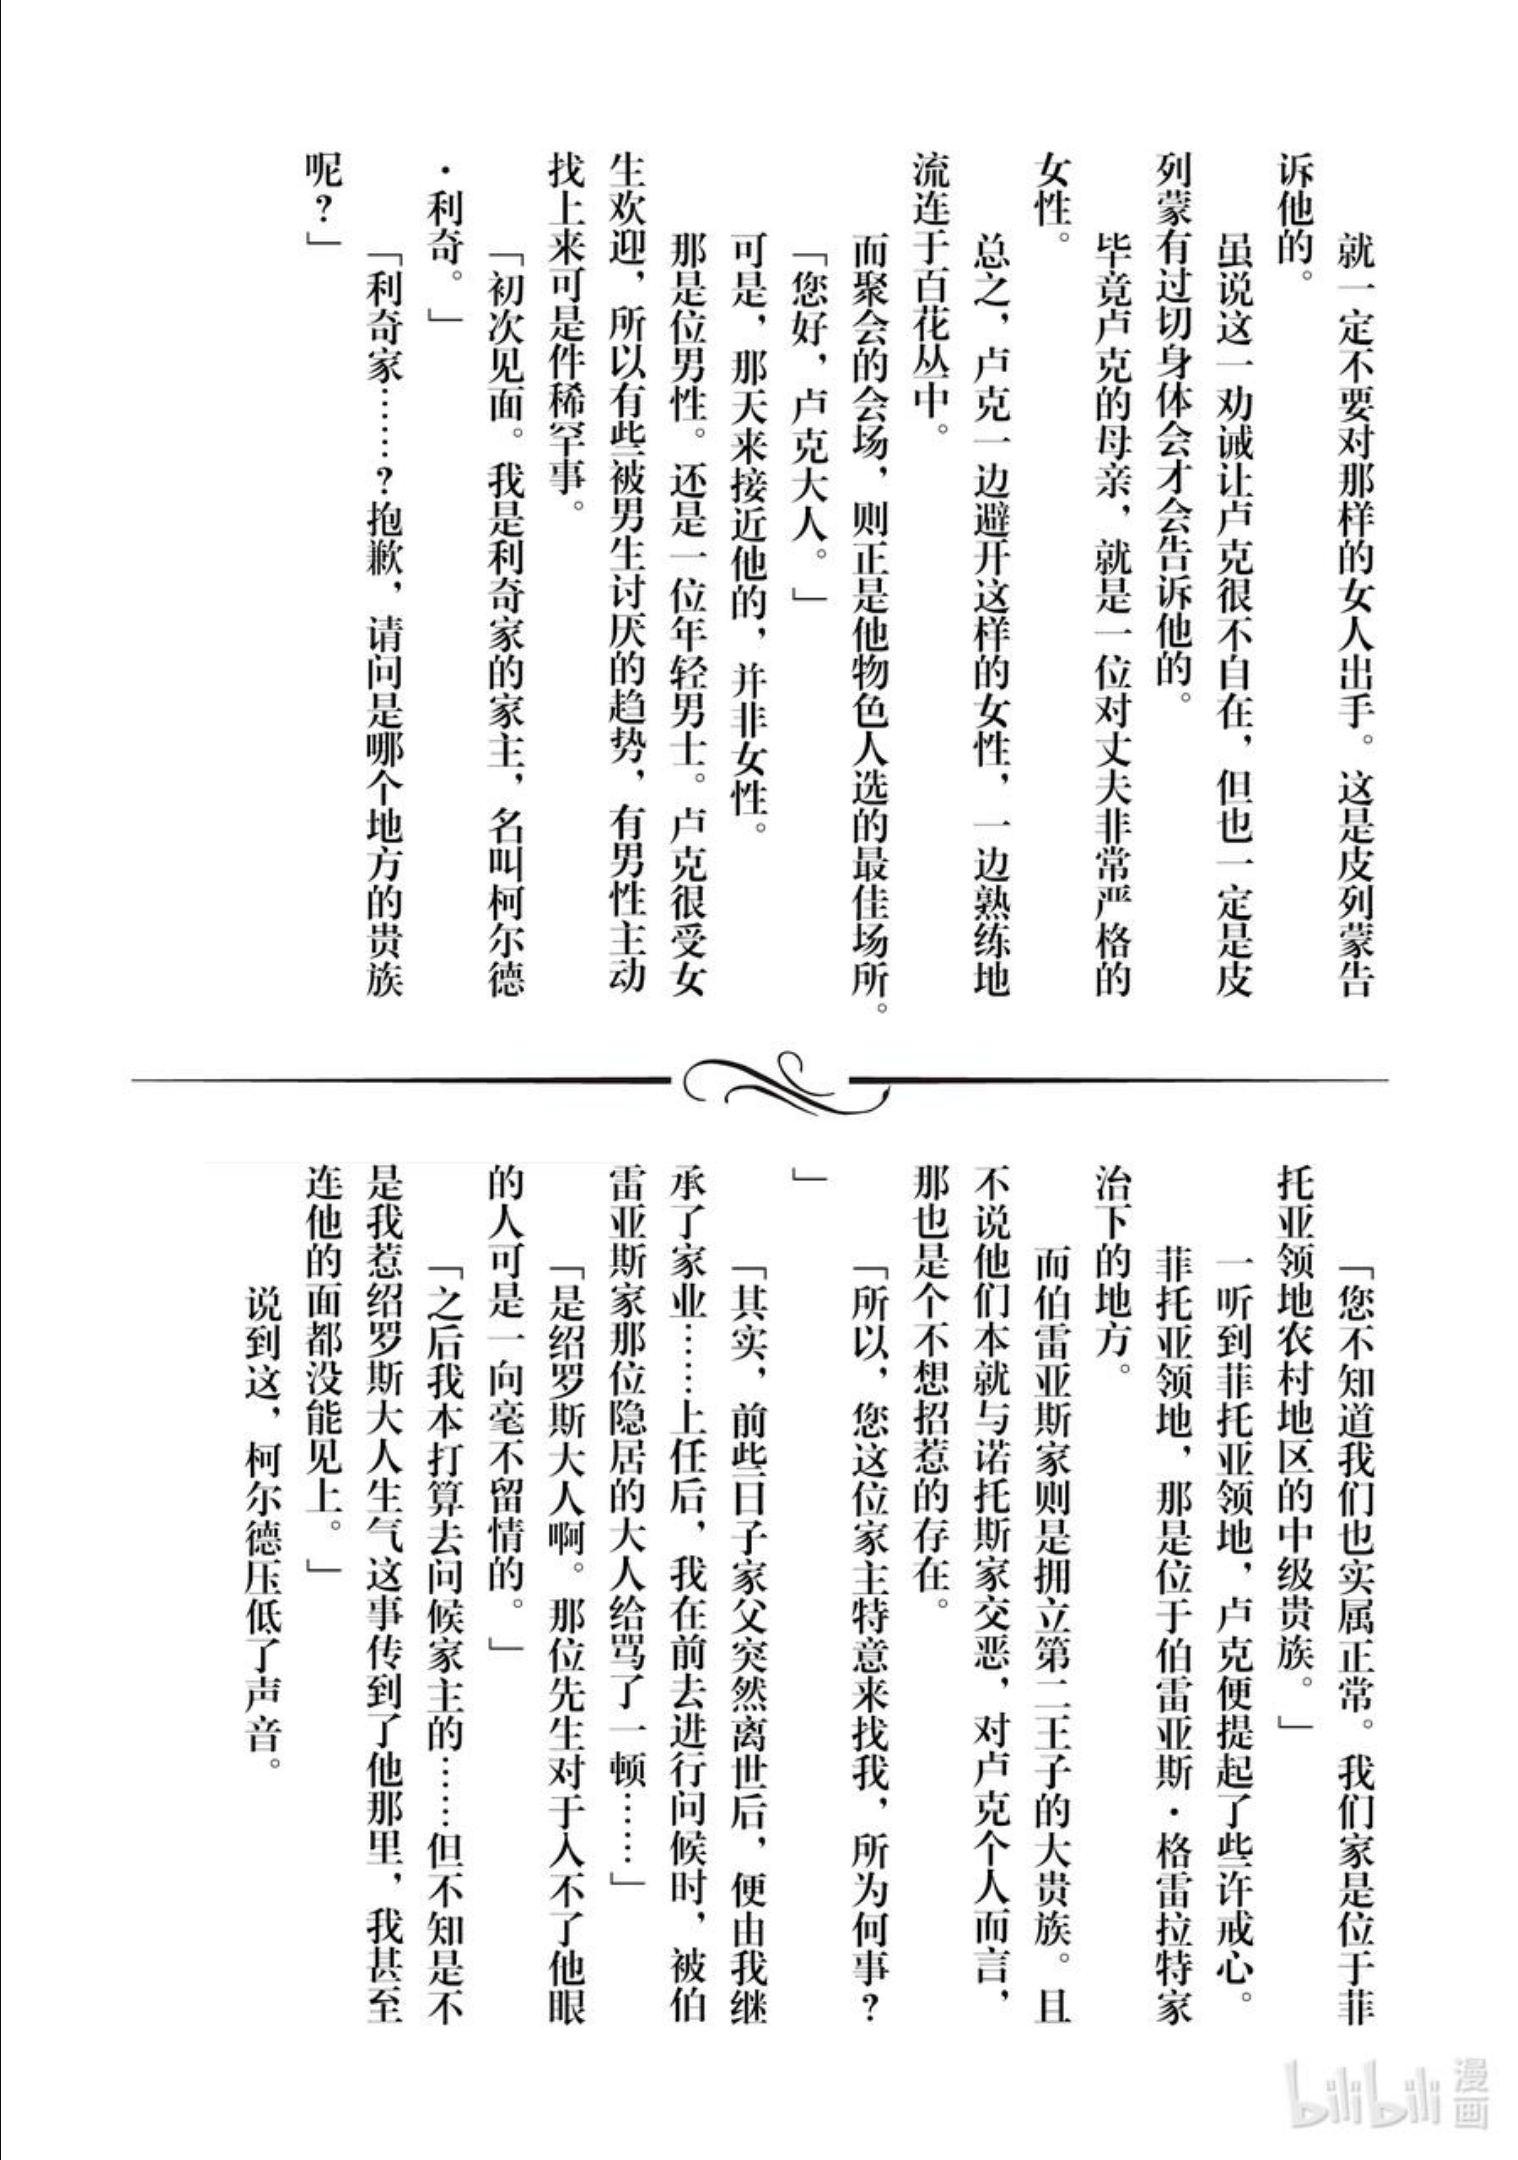 就一定不要对那样的女人出手。这是皮列蒙告
诉他的。
虽说这一劝诫让卢克很不自在，但也一定是皮
列蒙有过切身体会才会告诉他的。
毕竟卢克的母亲，就是一位对丈夫非常严格的
女性。
总之，卢克一边避开这样的女性，一边熟练地
流连于百花丛中。
而聚会的会场，则正是他物色人选的最佳场所。
「您好，卢克大人。」
可是，那天来接近他的，并非女性。
那是位男性。还是一位年轻男士。卢克很受女
生欢迎，所以有些被男生讨厌的趋势，有男性主动
找上来可是件稀罕事。
「初次见面。我是利奇家的家主，名叫柯尔德
・利奇。」
「利奇家……？抱歉，请问是哪个地方的贵族
呢？」
「您不知道我们也实属正常。我们家是位于菲
托亚领地农村地区的中级贵族。」
一听到菲托亚领地，卢克便提起了些许戒心。
菲托亚领地，那是位于伯雷亚斯・格雷拉特家
治下的地方。
而伯雷亚斯家则是拥立第二王子的大贵族。且
不说他们本就与诺托斯家交恶，对卢克个人而言，
那也是个不想招惹的存在。
「所以，您这位家主特意来找我，所为何事？
」
「其实，前些日子家父突然离世后，便由我继
承了家业……上任后，我在前去进行问候时，被伯
雷亚斯家那位隐居的大人给骂了一顿……」
「是绍罗斯大人啊。那位先生对于入不了他眼
的人可是一向毫不留情的。」
「之后我本打算去问候家主的……但不知是不
是我惹绍罗斯大人生气这事传到了他那里，我甚至
连他的面都没能见上。」
说到这，柯尔德压低了声音。
bilibili 漫画